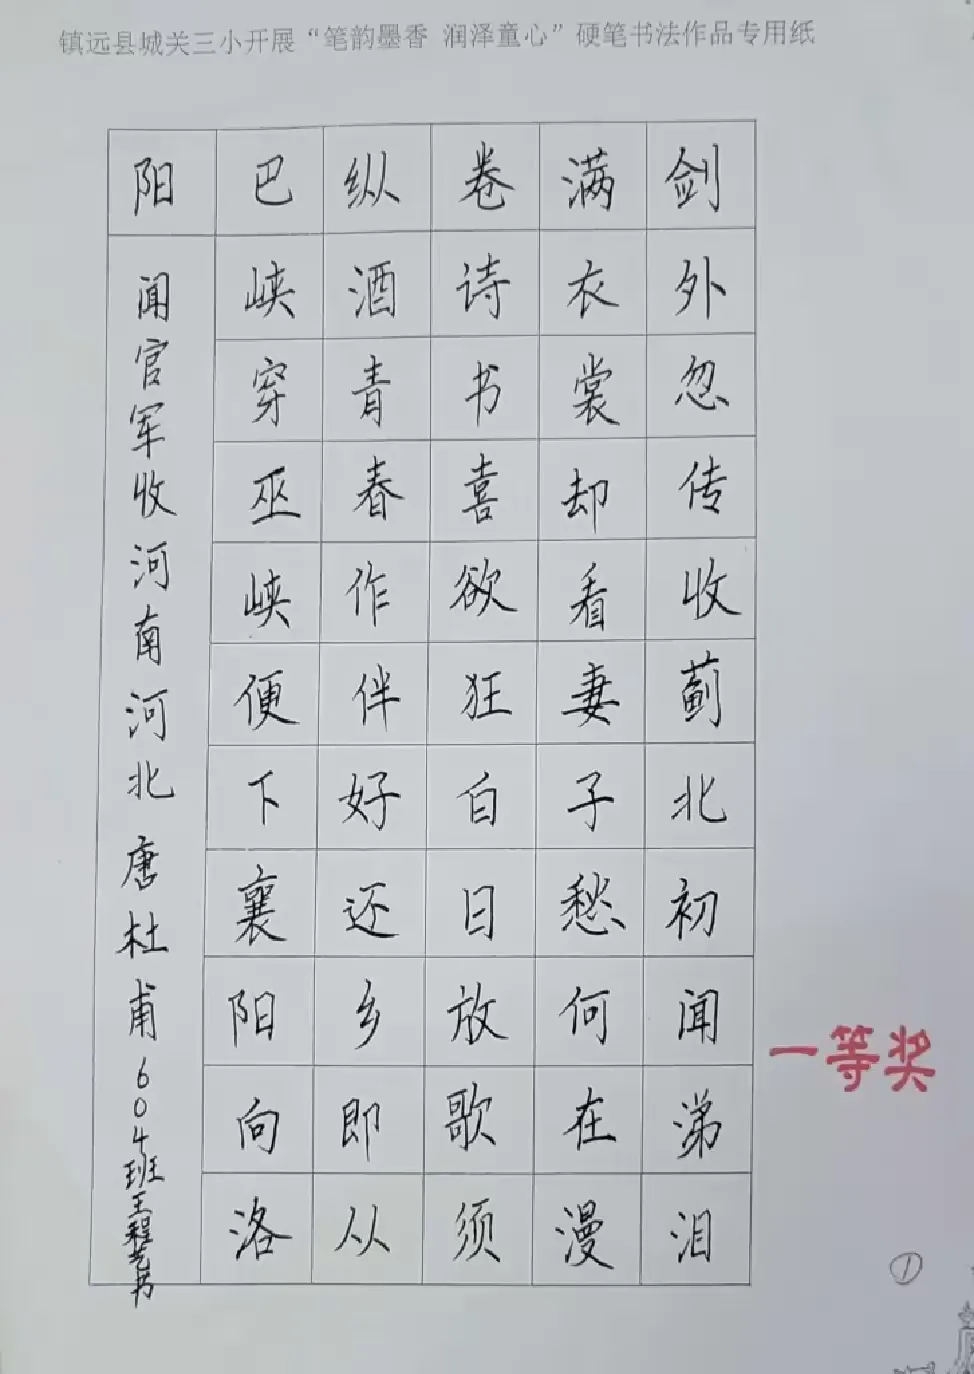 镇远县城关三小开展“笔韵墨香 润泽童心”硬笔书法作品专用纸
剑外忽传收蓟北初闻涕泪
满衣裳却看妻子愁何在漫
卷诗书喜欲狂白日放歌须
纵酒青春作伴好还乡即从
巴峡穿巫峡便下襄阳向洛
阳
闻官军收河南河北唐杜甫604班王程艺书
一等奖
①